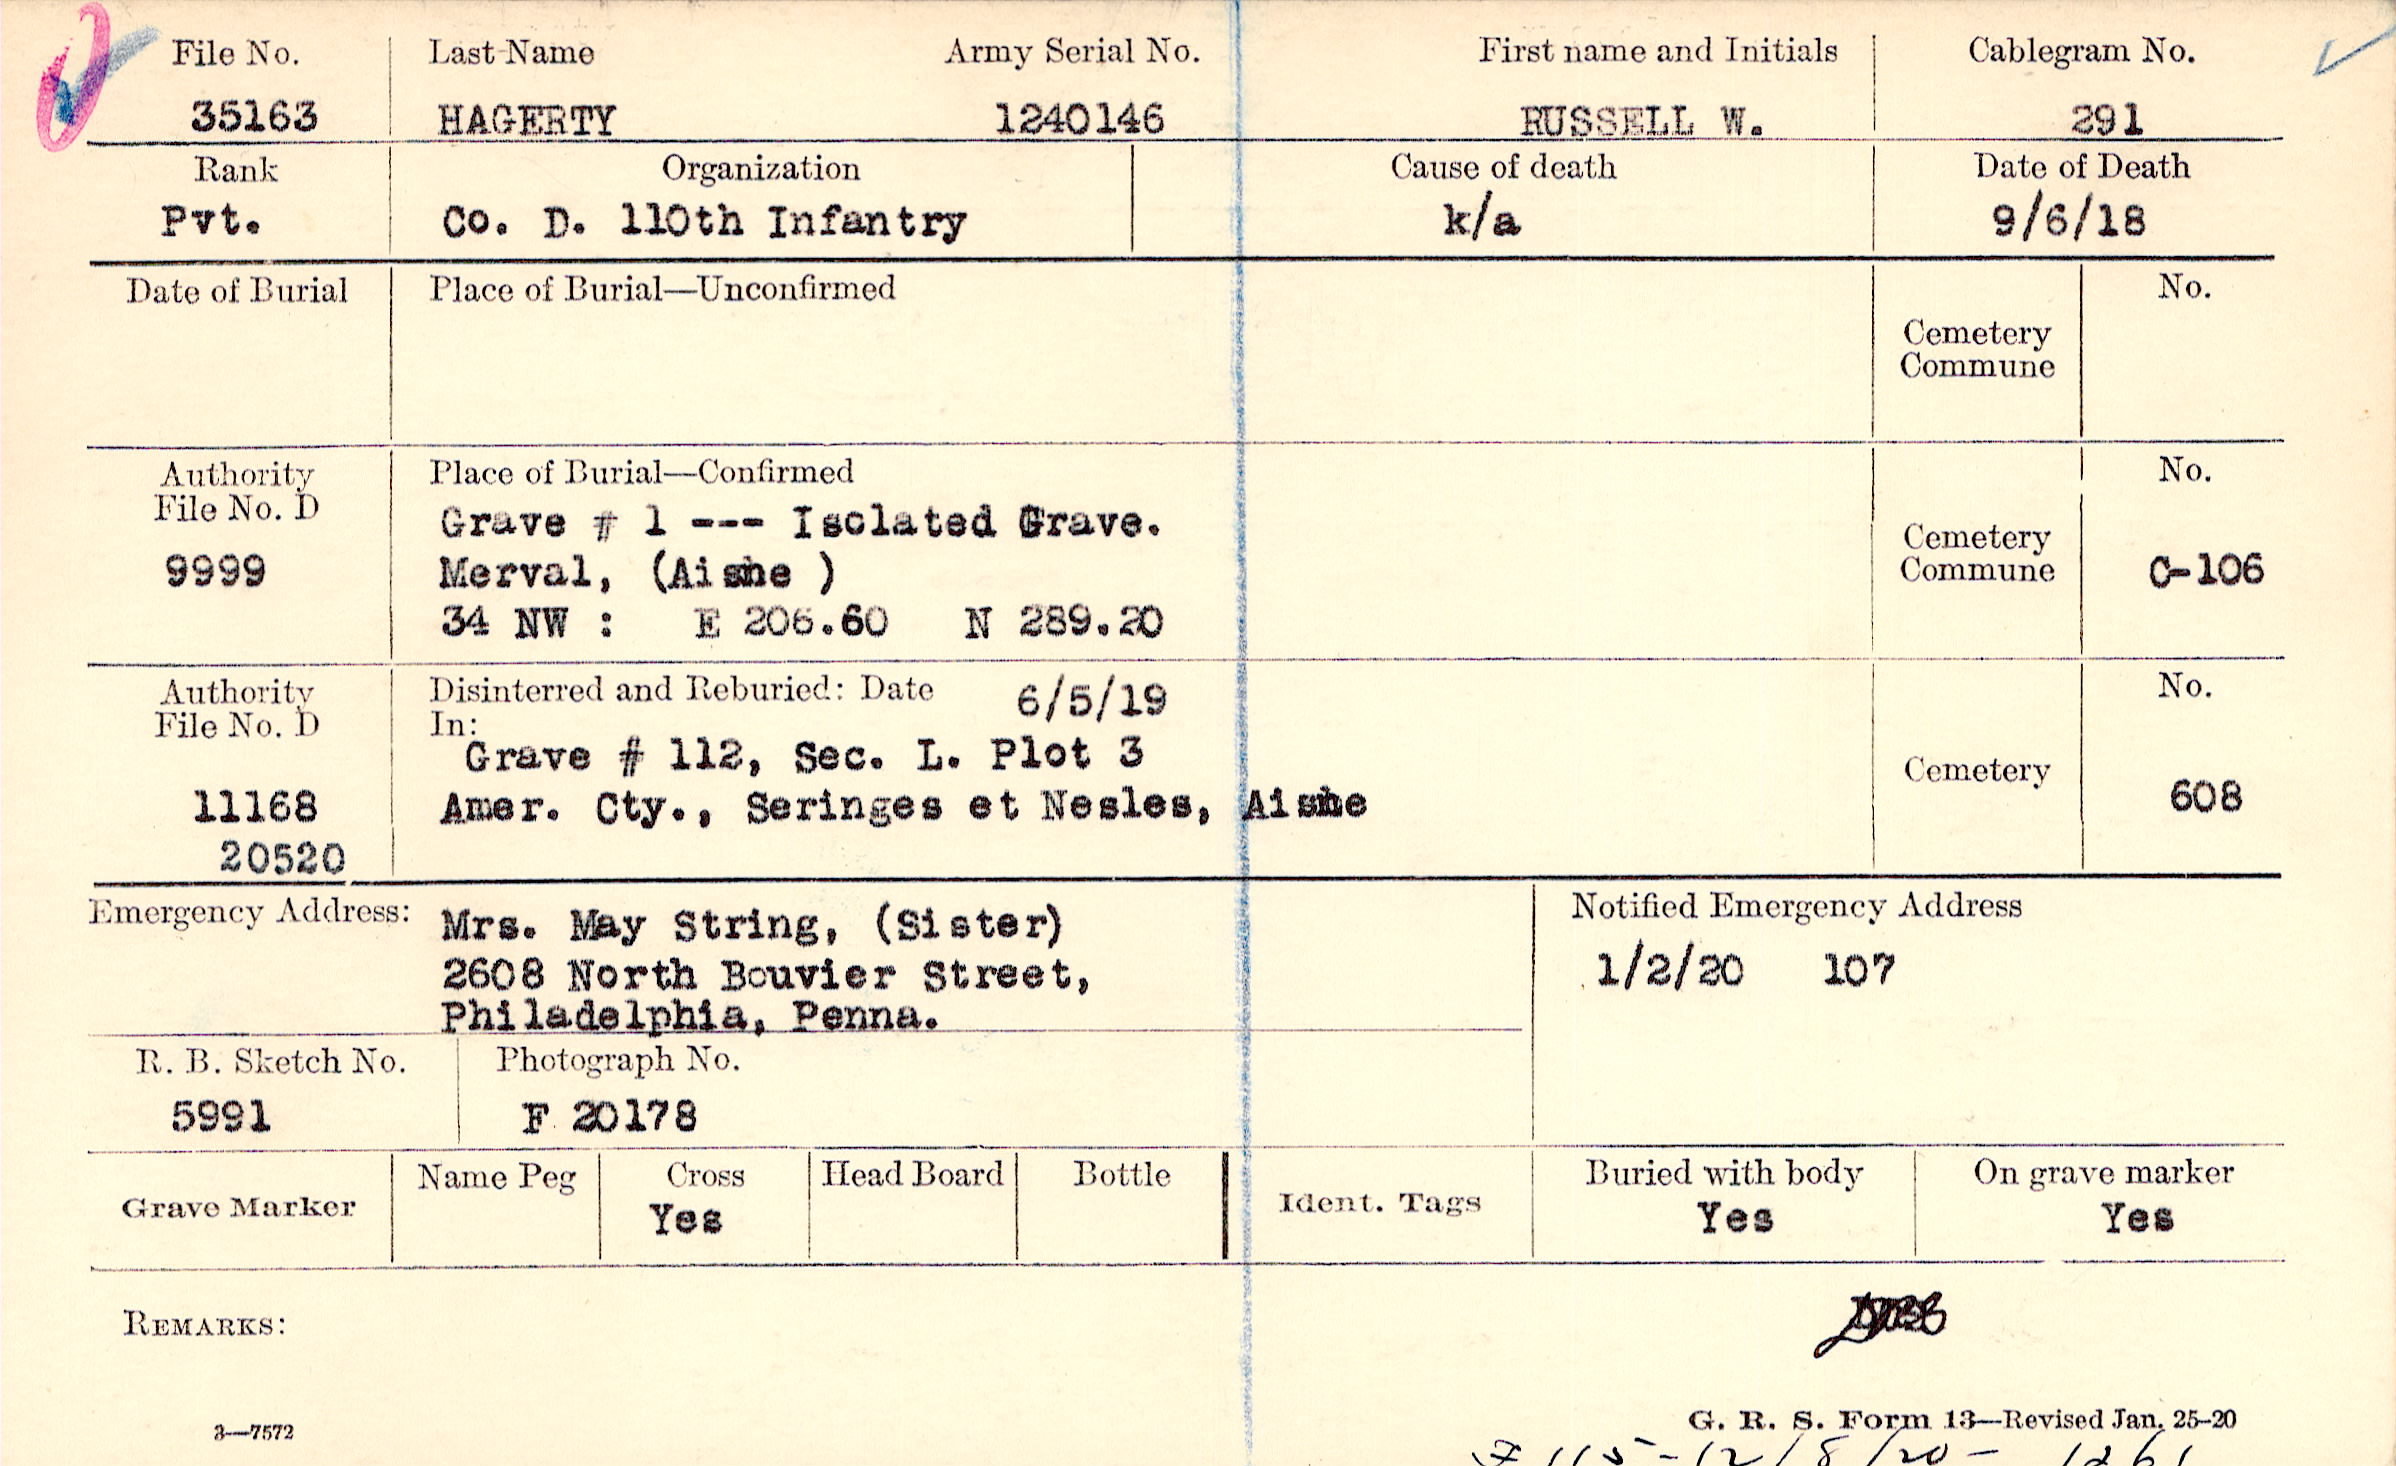 File No. Last Name Army Serial No. First name and Initials Cablegram No.
35163 HAGERTY 1240146 RUSSELL W. 291
Rank Organization Cause of death Date of Death
Pvt. Co. D. 110th Infantry k/a 9/6/18
Date of Burial Place of Burial—Unconfirmed No.
Cemetery
Commune
Authority Place of Burial—Confirmed No.
File No. D
Grave # 1 --- Isolated Grave.
Cemetery
9999 Merval, (Aisne ) Commune C-106
34 NW : E 206.60 N 289.20
Authority Disinterred and Reburied: Date 6/5/19 No.
File No. D In:
Grave # 112, Sec. L. Plot 3
Cemetery
11168 Amer. Cty., Seringes et Nesles, Aisne 608
20520
Emergency Address: Mrs. May String, (Sister) Notified Emergency Address
2608 North Bouvier Street, 1/2/20 107
Philadelphia, Penna.
R. B. Sketch No. Photograph No.
5991 F 20178
Grave Marker Name Peg Cross Head Board Bottle Ident. Tags Buried with body On grave marker
Yes Yes Yes
REMARKS:
3—7572 G. R. S. Form 13—Revised Jan. 25-20